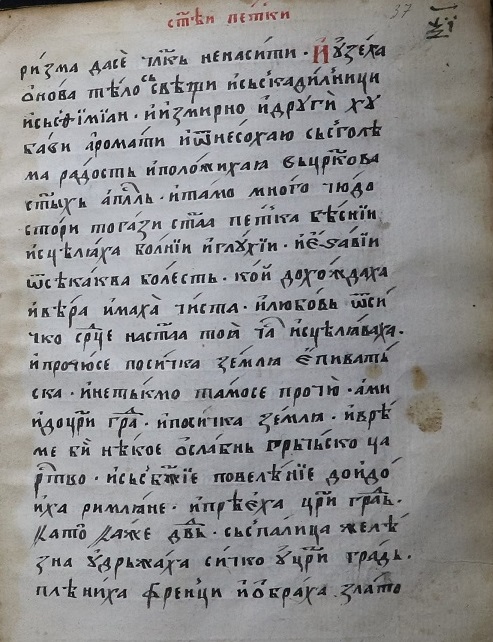 ст҃еи пе́тки
37
ри́зма да се́ чл҃къ ненаси́ти · И҆ у҆зе́ха
о҆нова тѣ́ло съ свѣ́щи и҆ съ скади́лници
и҆ съ ѳимїа́н · и҆ и҆змирно и҆ дрꙋги́ хꙋ́
бави а҆рома́ти и҆ ѿнесо́хаю съ с голѣ́
ма ра́дость и҆ положи́хаꙗ въ цр҃кова
ст҃ы́хъ а҆пⷭ҇лъ · и҆ та́мо мно́го чю́до
стори́ тога́зи ст҃аа пе́тка бѣ́снїи
и҆сцелꙗ́ха бо́лнїи и҆ глꙋ́хїи · и҆ е҆́ѕавїи
ѿ сѣ́каква бо́лесть · ко́и дохо́ждаха
и҆ вѣ́ра и҆маха̀ чи́ста · и҆ любо́вь ѿ си́
чко ср҃це на ст҃аа тоꙗ̀ гѝ и҆сцелꙗ́ваха ·
и҆ прочю́се по си́чка зе́млꙗ е҆пиватъ́
ска · и҆ не тъ́кмо та́мо се прочю̀ · а҆ми
и҆ до цр҃и гра́дⷣ · и҆ по си́чка зе́млꙗ · и҆ врѣ́
ме бѝ нѣ́кое о҆сла́бнь гръ́чьско ца́
рⷭ҇тво · и҆ съ бж҃їе повелѣ́нїе до́йдо́
и҆ха ри́млꙗне · и҆ прѣе́ха цр҃и гра́дⷣ ·
като̀ ка́же дв҃дъ · съ с па́лица желѣ́
зна ᲂу҆дръ́жаха си́чко ᲂу҆ цр҃и гра́дь ·
плѣ́ниха фре́нци и҆ ѡ҆бра́ха зла́то